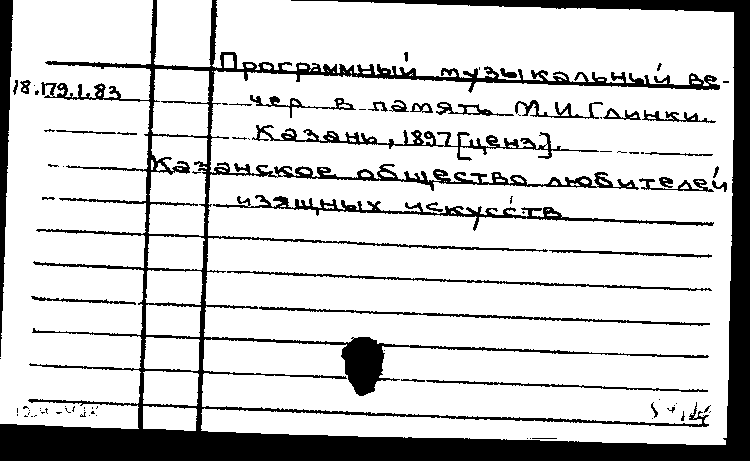 Программный музыкальный ве-
18.179.1.83
чер в память М.И.Глинки.
Казань, 1897[ценз.].
Казанское общество любителей
изящных искусств